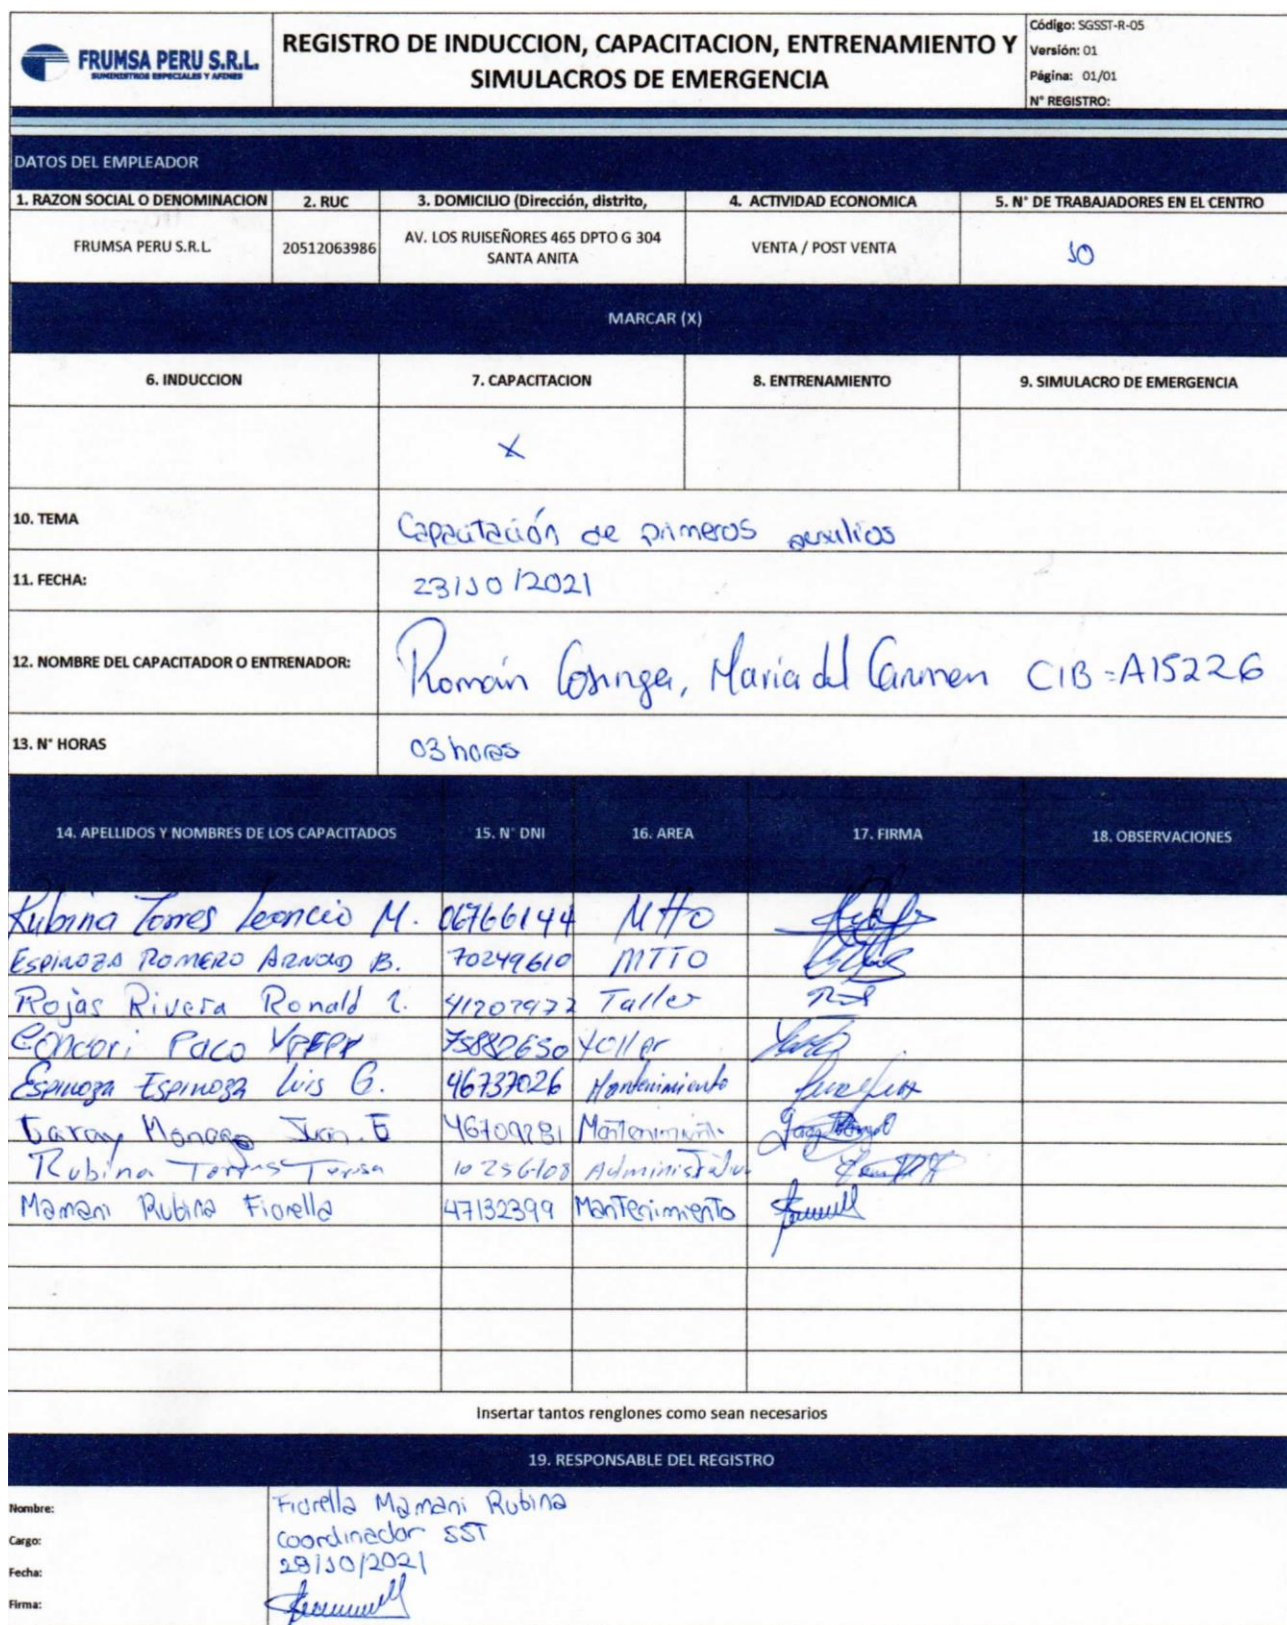 FRUMSA PERU S.R.L.
SUMINISTROS ESPECIALES Y AFINES
REGISTRO DE INDUCCION, CAPACITACION, ENTRENAMIENTO Y
SIMULACROS DE EMERGENCIA
Código: SGSST-R-05
Versión: 01
Página: 01/01
N° REGISTRO:
DATOS DEL EMPLEADOR
1. RAZON SOCIAL O DENOMINACION 2. RUC 3. DOMICILIO (Dirección, distrito, 4. ACTIVIDAD ECONOMICA 5. N° DE TRABAJADORES EN EL CENTRO
FRUMSA PERU S.R.L. 20512063986 AV. LOS RUISEÑORES 465 DPTO G 304 VENTA / POST VENTA 10
SANTA ANITA
MARCAR (X)
6. INDUCCION 7. CAPACITACION 8. ENTRENAMIENTO 9. SIMULACRO DE EMERGENCIA
X
10. TEMA Capacitación de primeros auxilios
11. FECHA: 23/10/2021
12. NOMBRE DEL CAPACITADOR O ENTRENADOR: Román Cosinga, Maria del Carmen CIB=A15226
13. N° HORAS 03 horas
14. APELLIDOS Y NOMBRES DE LOS CAPACITADOS 15. N° DNI 16. AREA 17. FIRMA 18. OBSERVACIONES
Rubina Torres Leoncio M. 06766144 MTTO
ESPINOZA ROMERO ARNOLD B. 70249610 MTTO
Rojas Rivera Ronald 41207977 Taller
Concori Paco 75882650 Taller
Espinoza Espinoza Luis G. 46737026 Mantenimiento
Garay Juan E Mantenimiento
Rubina Torres Teresa
Mamani Rubina Fiorella 47132399 Mantenimiento
Insertar tantos renglones como sean necesarios
19. RESPONSABLE DEL REGISTRO
Nombre: Fiorella Mamani Rubina
Cargo: Coordinador SST
Fecha: 29/10/2021
Firma: